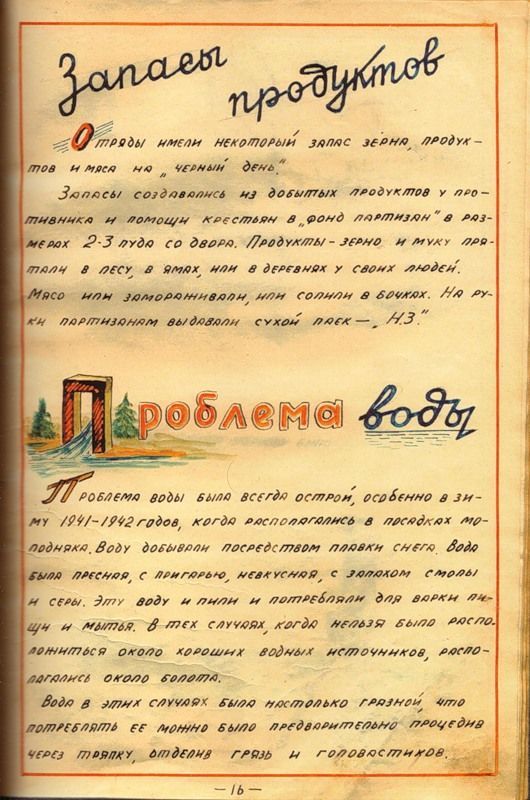 Запасы
продуктов
Отряды имели некоторый запас зерна, продук-
тов и мяса на „черный день".
Запасы создавались из добытых продуктов у про-
тивника и помощи крестьян в „фонд партизан" в раз-
мерах 2-3 пуда со двора. Продукты-зерно и муку пря-
тали в лесу, в ямах, или в деревнях у своих людей.
Мясо или замораживали, или солили в бочках. На ру-
ки партизанам выдавали сухой паек — „Н.З."
Проблема воды
Проблема воды была всегда острой, особенно в зи-
му 1941-1942 годов, когда располагались в посадках мо-
лодняка. Воду добывали посредством плавки снега. Вода
была пресная, с пригарью, невкусная, с запахом смолы
и серы. Эту воду и пили и потребляли для варки пи-
щи и мытья. В тех случаях, когда нельзя было распо-
ложиться около хороших водных источников, распо-
лагались около болота.
Вода в этих случаях была настолько грязной, что
потреблять ее можно было предварительно процедив
через тряпку, отделив грязь и головастиков.
— 16 —